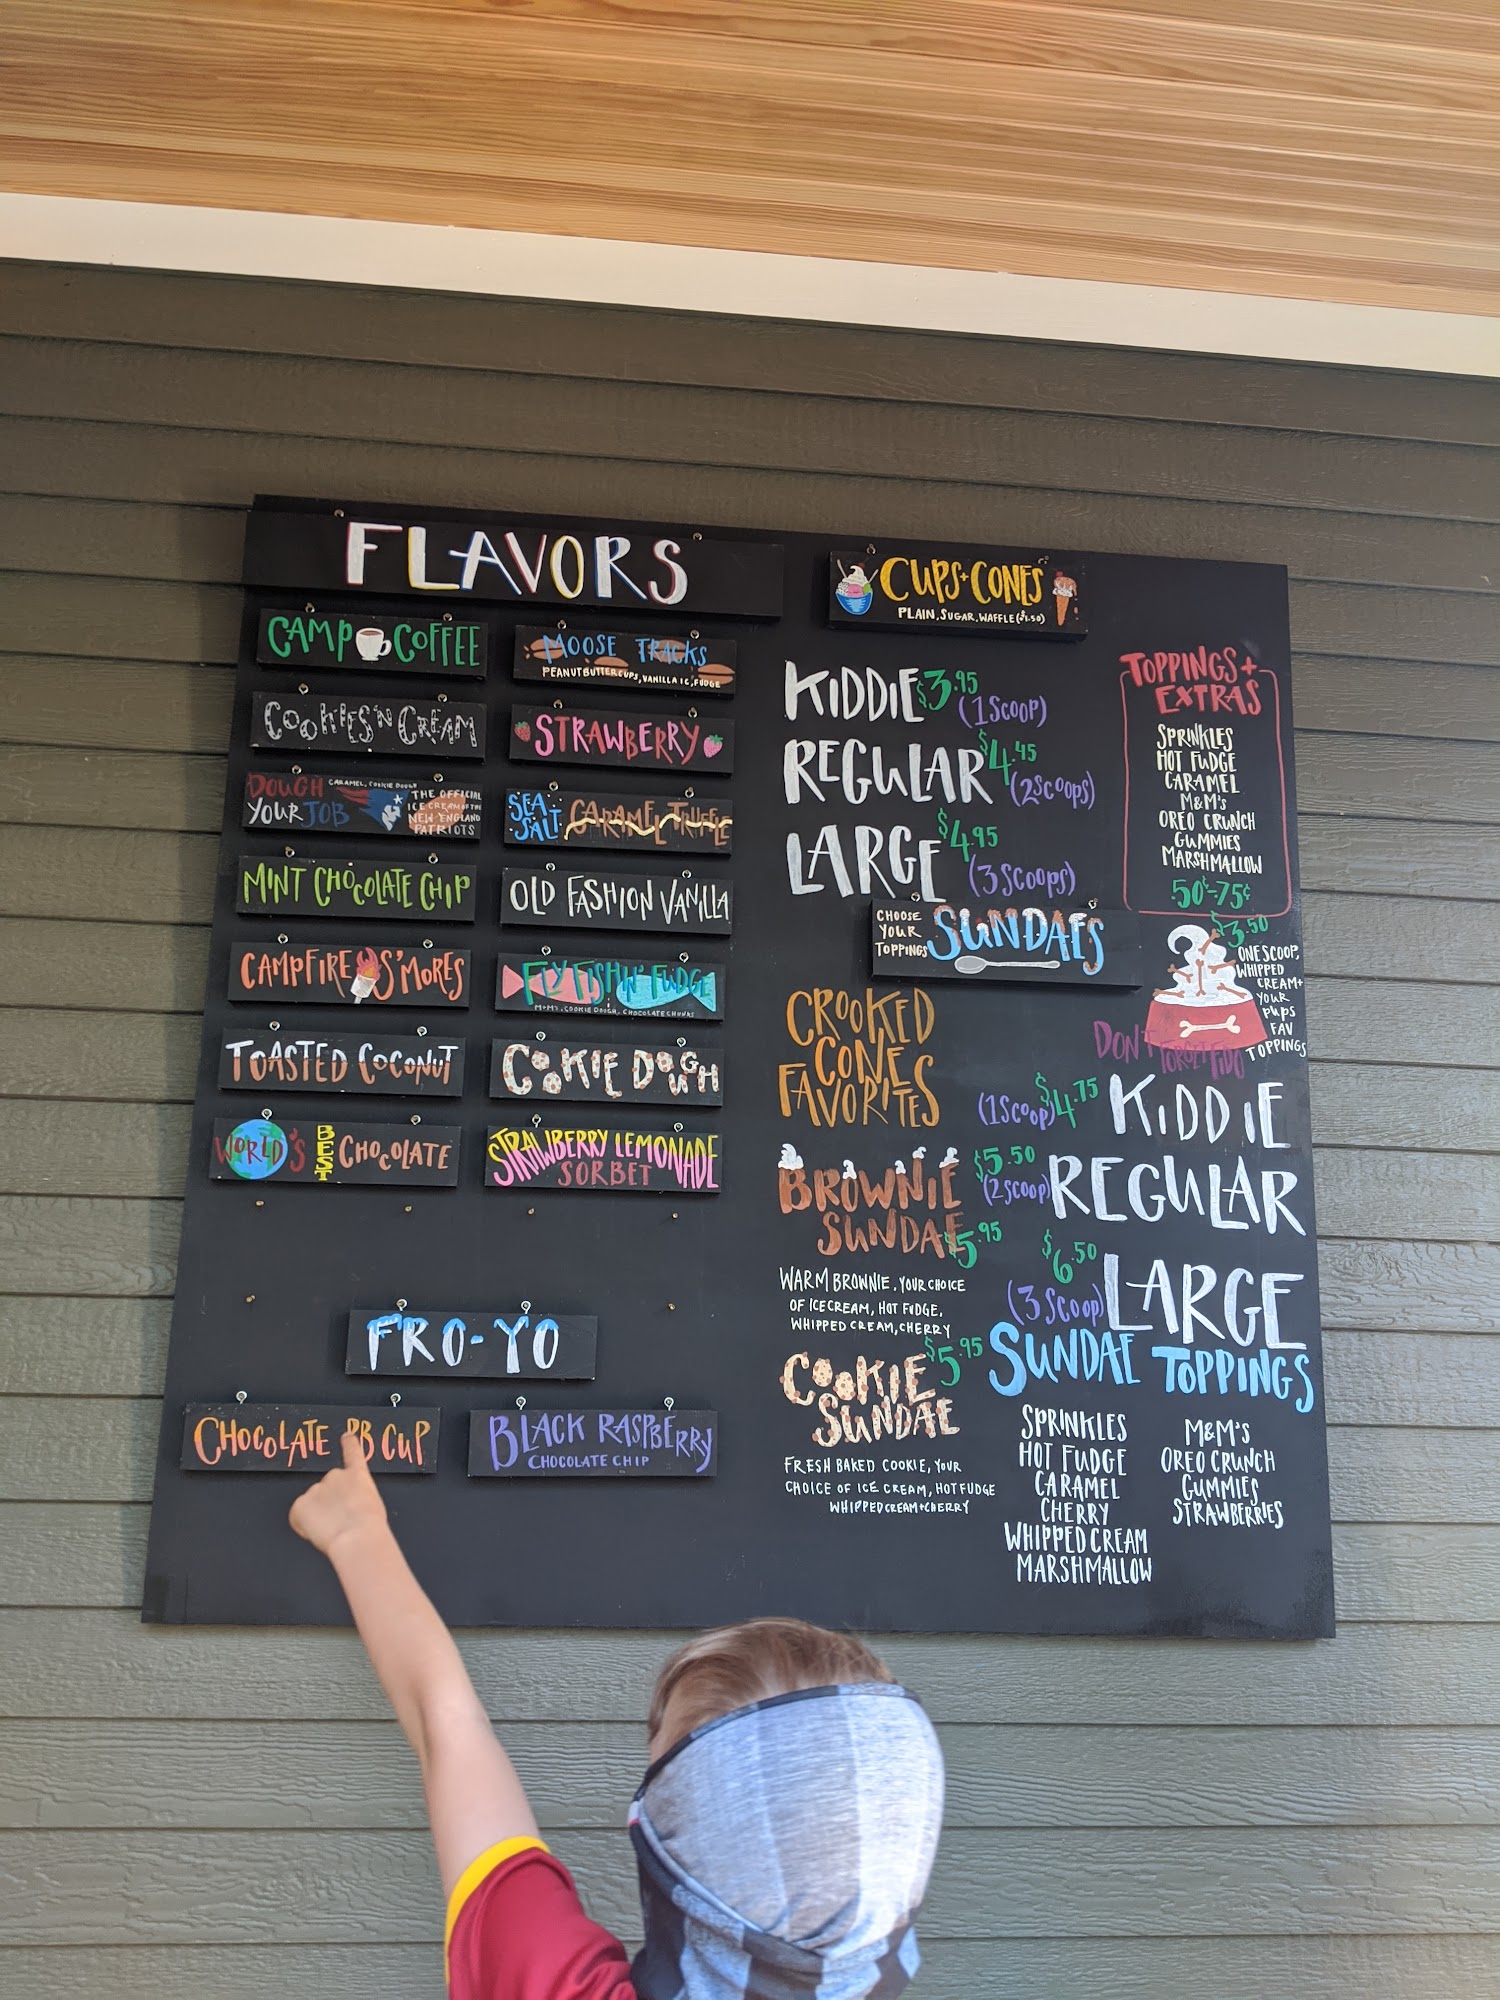 FLAVORS
CAMP COFFEE
COOKIES 'N CREAM
DOUGH
YOUR JOB
CARAMEL, COOKIE DOUGH
THE OFFICIAL
ICE CREAM OF THE
NEW ENGLAND
PATRIOTS
MINT CHOCOLATE CHIP
CAMPFIRE S'MORES
TOASTED COCONUT
WORLD'S BEST CHOCOLATE
MOOSE TRACKS
PEANUT BUTTER CUPS, VANILLA IC, FUDGE
STRAWBERRY
SEA
SALT CARAMEL TRUFFLE
OLD FASHION VANILLA
FLY FISH'N' FUDGE
M+M'S, COOKIE DOUGH, CHOCOLATE CHUNKS
COOKIE DOUGH
STRAWBERRY LEMONADE
SORBET
FRO-YO
CHOCOLATE PB CUP
BLACK RASPBERRY
CHOCOLATE CHIP
CUPS+CONES
PLAIN, SUGAR, WAFFLE ($1.50)
KIDDIE $3.95
(1 SCOOP)
REGULAR $4.45
(2 SCOOPS)
LARGE $4.95
(3 SCOOPS)
TOPPINGS+
EXTRAS
SPRINKLES
HOT FUDGE
CARAMEL
M&M'S
OREO CRUNCH
GUMMIES
MARSHMALLOW
.50¢-75¢
CHOOSE
YOUR
TOPPINGS
SUNDAES
$3.50
ONE SCOOP,
WHIPPED
CREAM+
YOUR
PUPS
FAV
TOPPINGS
DON'T FORGET FIDO
CROOKED
CONE
FAVORITES
BROWNIE
SUNDAE $5.95
WARM BROWNIE, YOUR CHOICE
OF ICE CREAM, HOT FUDGE,
WHIPPED CREAM, CHERRY
COOKIE $5.95
SUNDAE
FRESH BAKED COOKIE, YOUR
CHOICE OF ICE CREAM, HOT FUDGE
WHIPPED CREAM+CHERRY
(1 SCOOP) $4.75 KIDDIE
$5.50
(2 SCOOP) REGULAR
$6.50
(3 SCOOP) LARGE
SUNDAE TOPPINGS
SPRINKLES
HOT FUDGE
CARAMEL
CHERRY
WHIPPED CREAM
MARSHMALLOW
M&M'S
OREO CRUNCH
GUMMIES
STRAWBERRIES